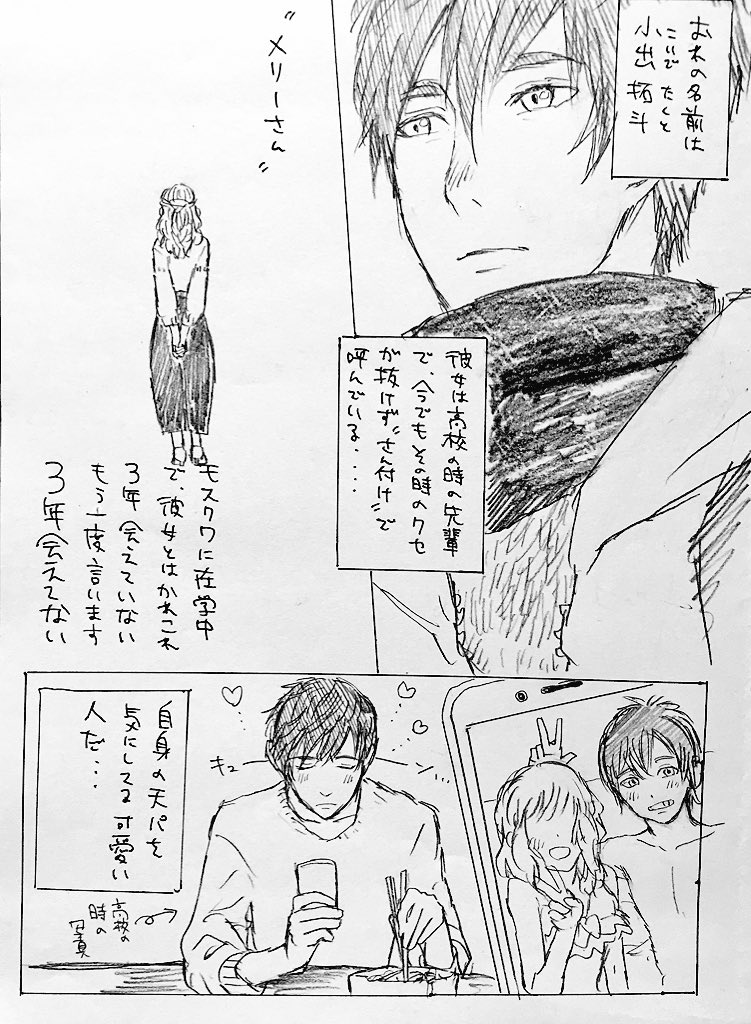 おれの名前は
こいで たくと
小出 拓斗
"メリーさん"
彼女は高校の時の先輩
で、今でもその時のクセ
が抜けず"さん付け"で
呼んでいる・・・・
モスクワに在学中
で、彼女とはかれこれ
3年会えていない
もう一度言います
3年会えてない
自身の天パを
気にしてる可愛い
人だ・・・
キュ
ーン...
高校の
時の
写真